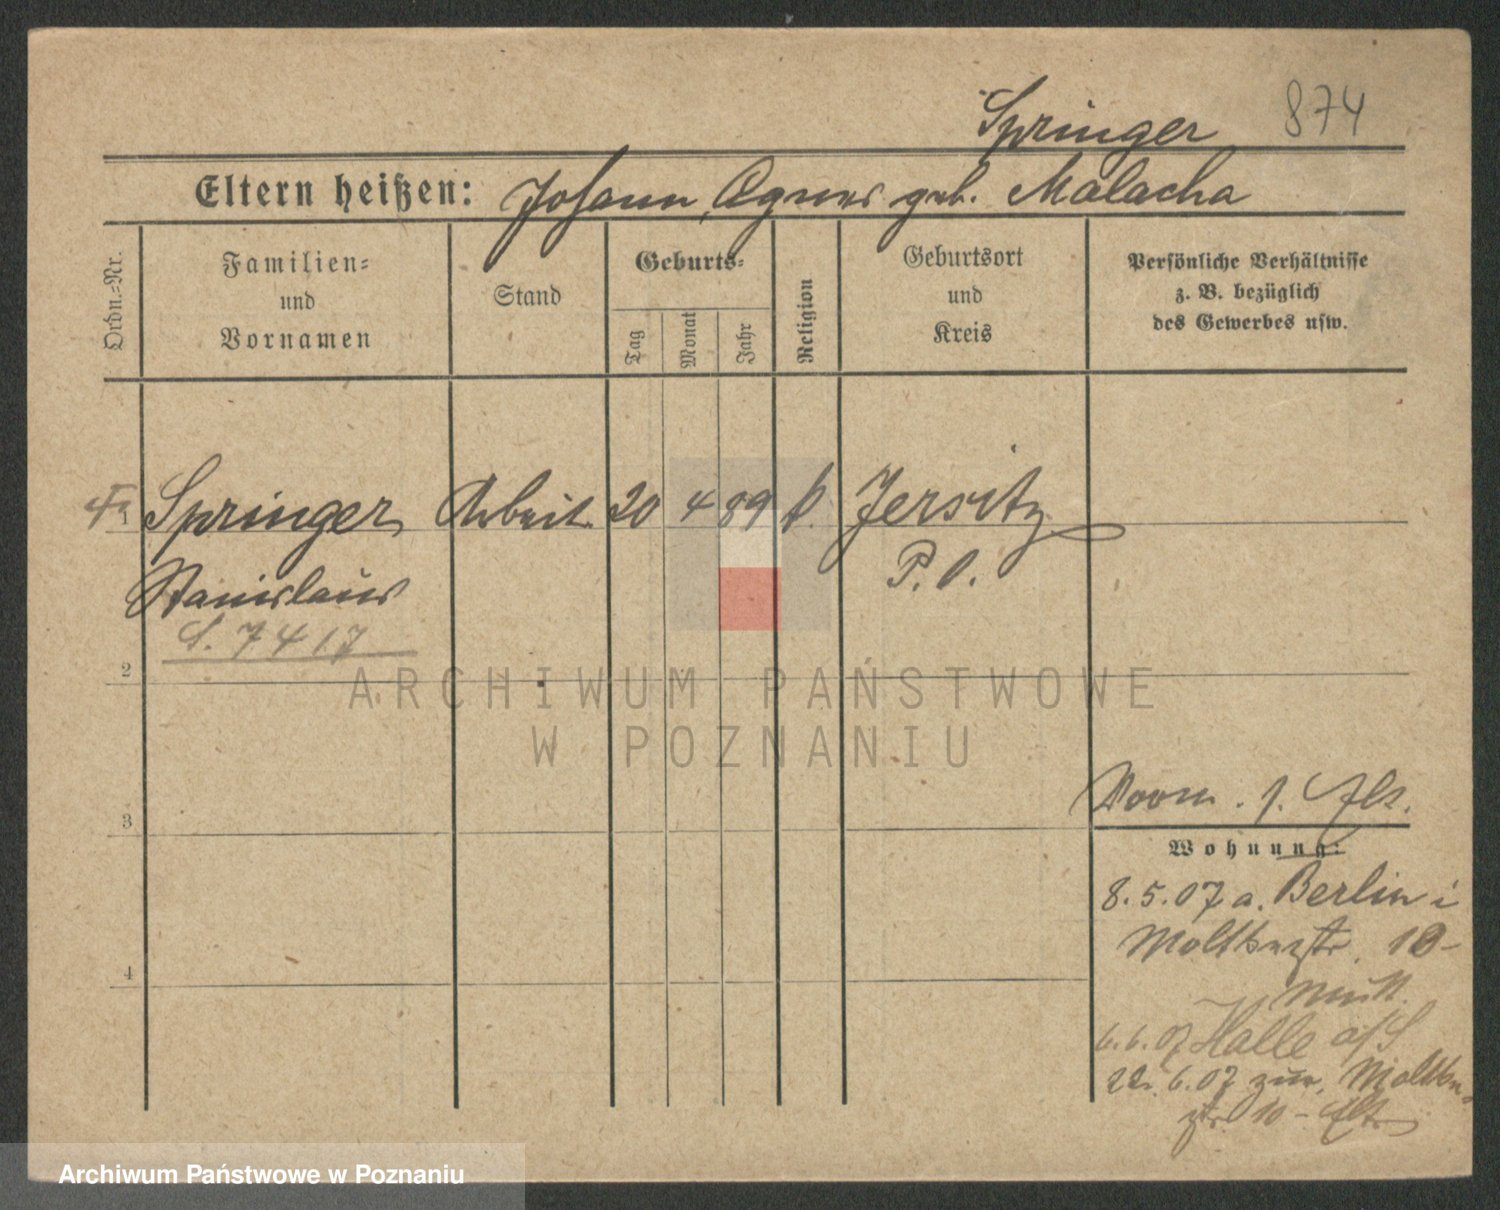 Springer 874
Eltern heißen: Johann, Agnes geb. Malacha
Ordn.-Nr.
Familien-
und
Vornamen
Stand
Geburts-
Tag
Monat
Jahr
Religion
Geburtsort
und
Kreis
Persönliche Verhältnisse
z. B. bezüglich
des Gewerbes usw.
1 Springer Arbeit. 20 4 89 k. Jersitz
Stanislaus P. O.
S. 7417
2
ARCHIWUM PAŃSTWOWE
W POZNANIU
3
Worm. s. Elt.
Wohnung:
8.5.07 a. Berlin i
Moltkestr. 10-
Mutt.
6.6.07 Halle a/S
22.6.07 zur. Moltke
str 10 - Elt.
4
Archiwum Państwowe w Poznaniu